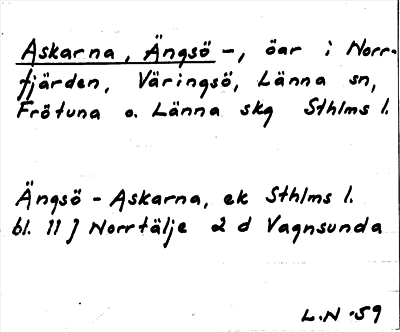 Askarna, Ängsö -, öar i Norr-
fjärden, Väringsö, Länna sn,
Frötuna o. Länna skg Sthlms l.
Ängsö - Askarna, ek Sthlms l.
bl. 11 J Norrtälje 2 d Vagnsunda
L.N -59